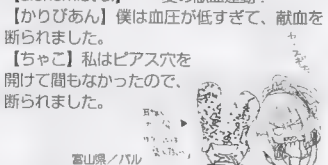 【かりぴあん】僕は血圧が低すぎて、献血を
断られました。
【ちゃこ】私はピアス穴を
開けて間もなかったので、
断られました。
富山県／パル